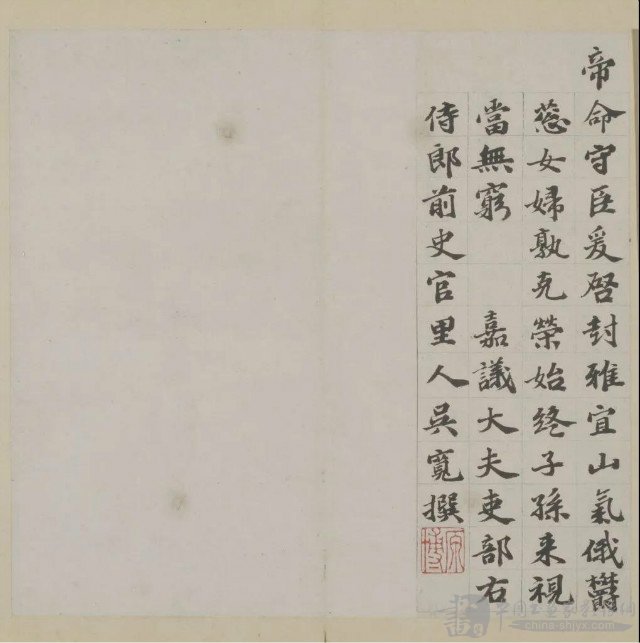 帝命守臣爰啓封雅宜山氣俄欝
蒸女婦孰克榮始終子孫来視
當無窮 嘉議大夫吏部右
侍郎前史官里人吳寬撰
原博
china-shjyx.com